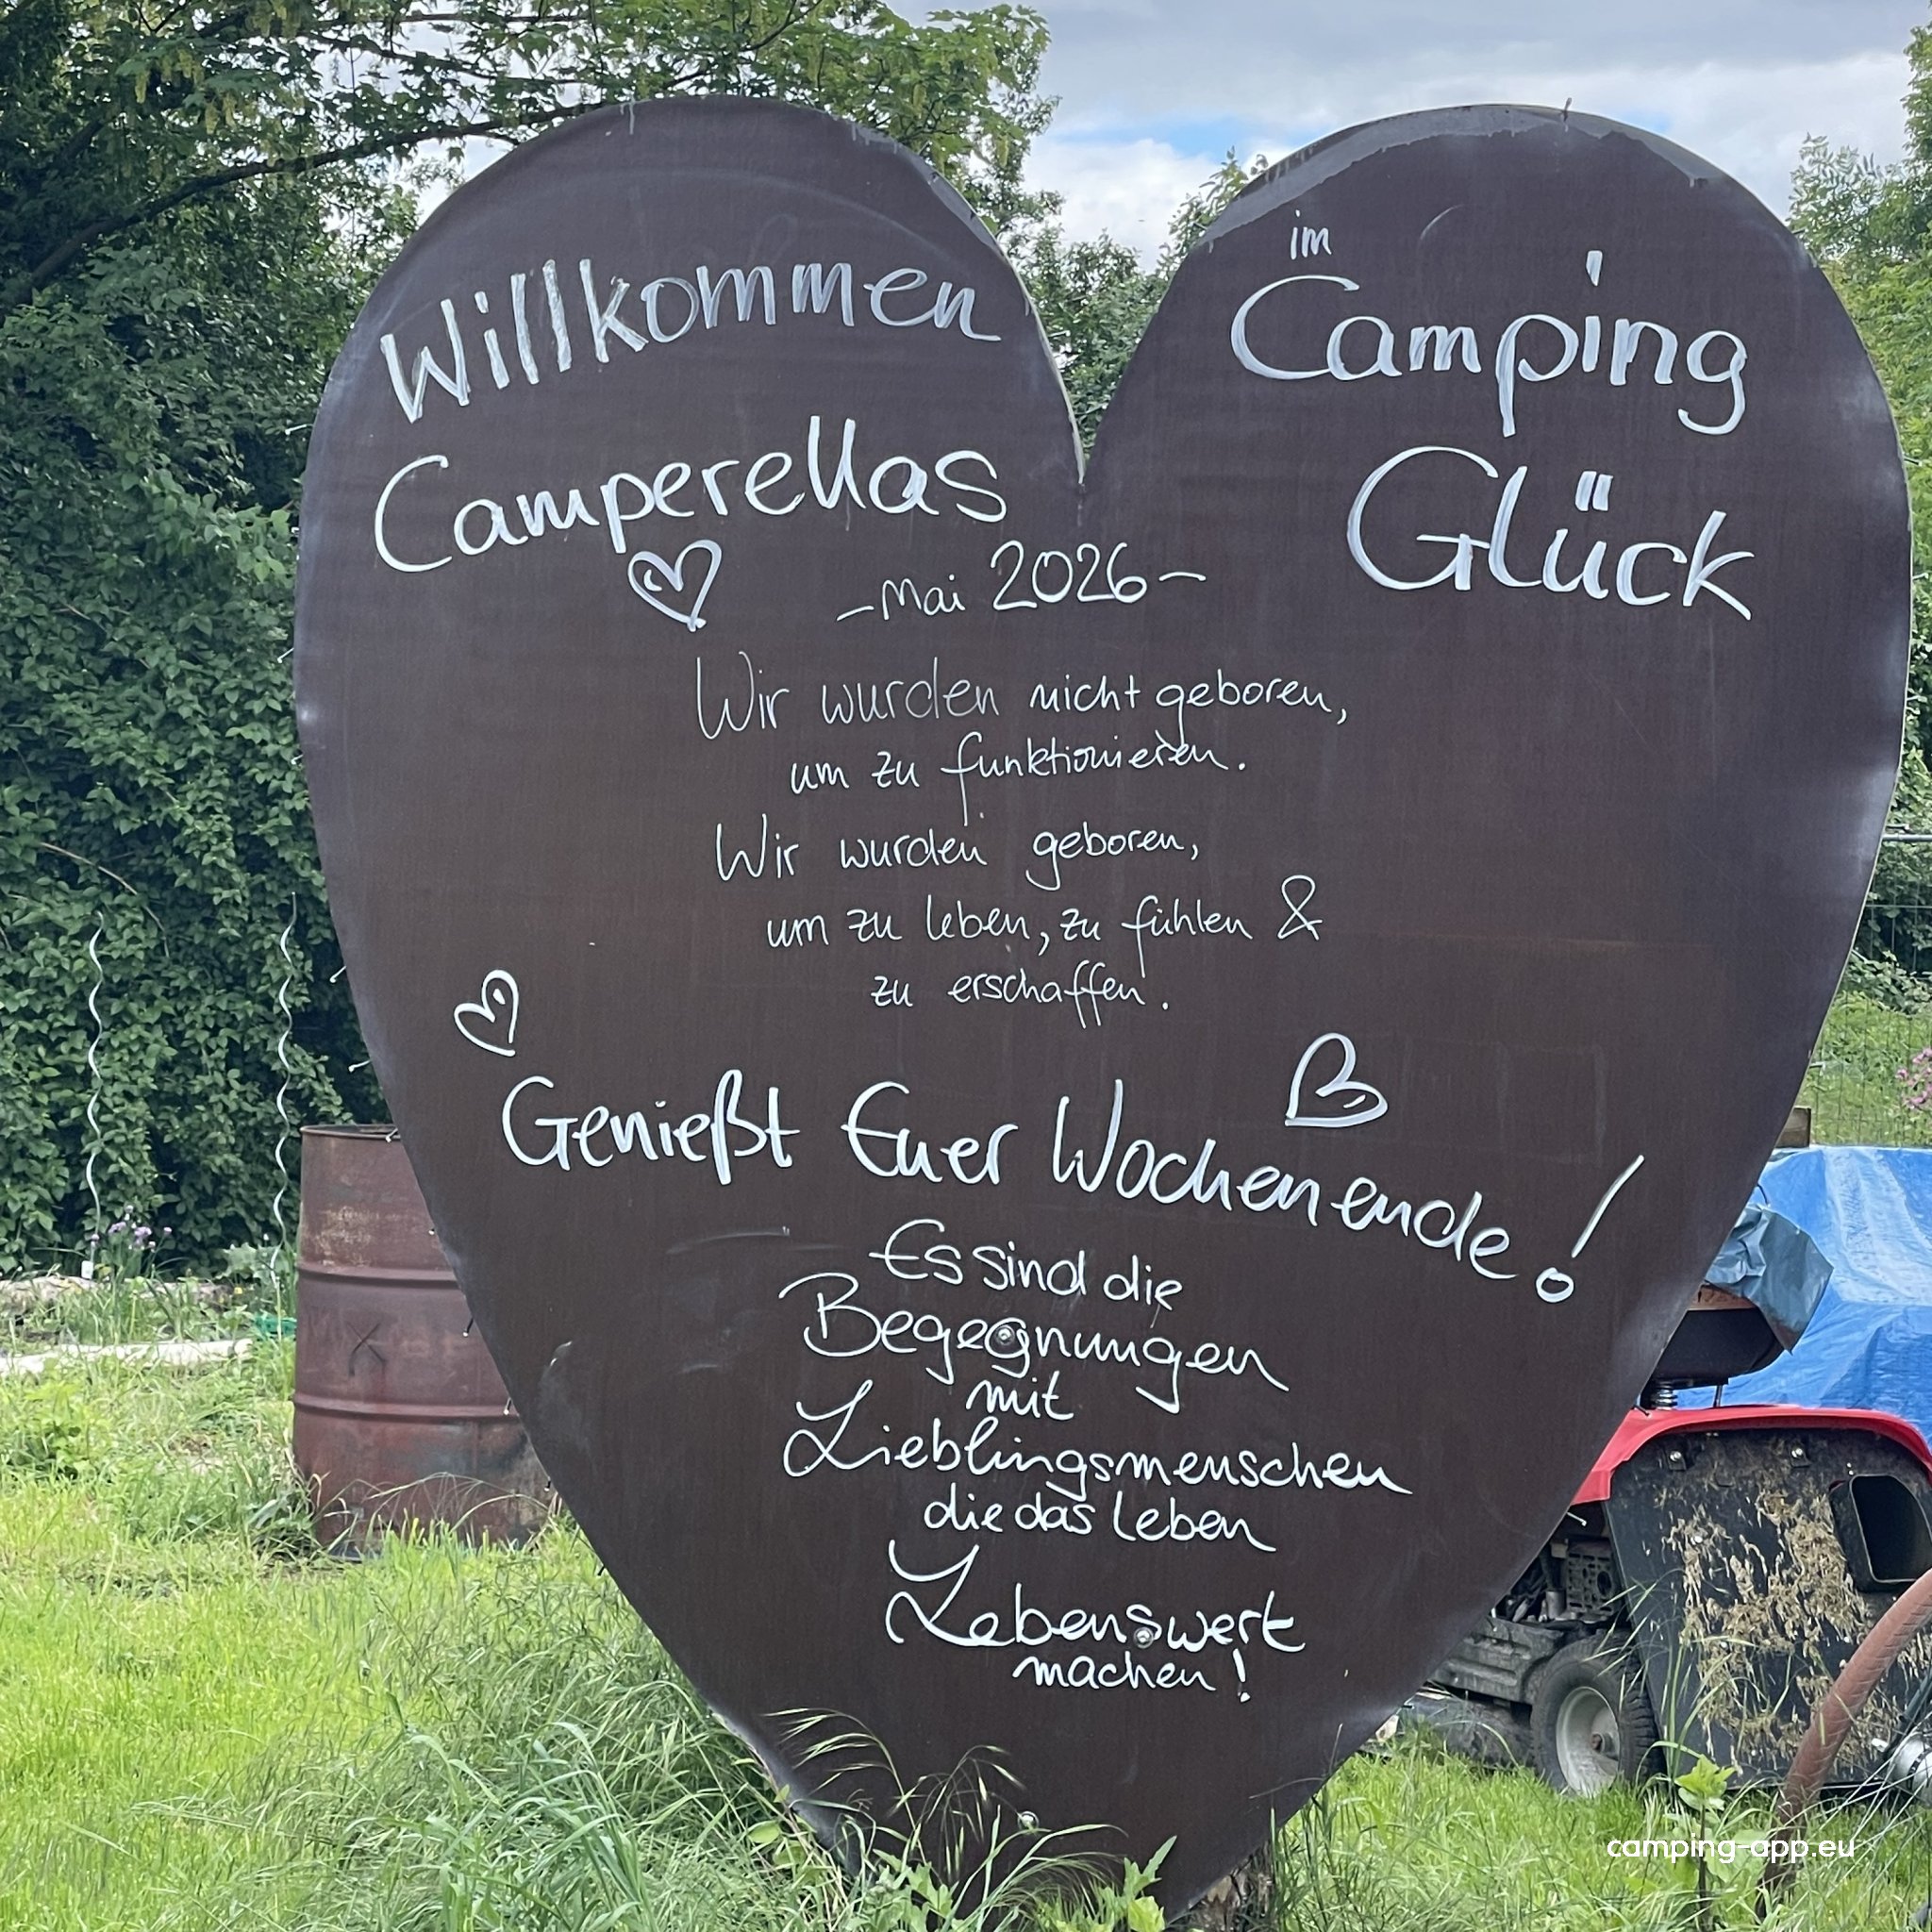 Willkommen
Camperellas
im
Camping
Glück
-Mai 2026-
Wir wurden nicht geboren,
um zu funktionieren.
Wir wurden geboren,
um zu leben, zu fühlen &
zu erschaffen.
Genießt Euer Wochenende!
Es sind die
Begegnungen
mit
Lieblingsmenschen
die das Leben
Lebenswert
machen!
camping-app.eu